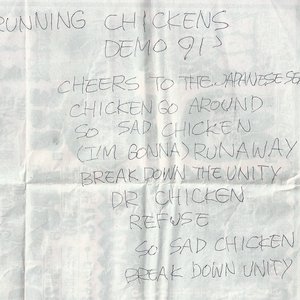 RUNNING CHICKENS
DEMO 91'
CHEERS TO THE JAPANESE SE
CHICKEN GO AROUND
SO SAD CHICKEN
(I'M GONNA) RUNAWAY
BREAK DOWN THE UNITY
DR CHICKEN
REFUSE
SO SAD CHICKEN
BREAK DOWN UNITY